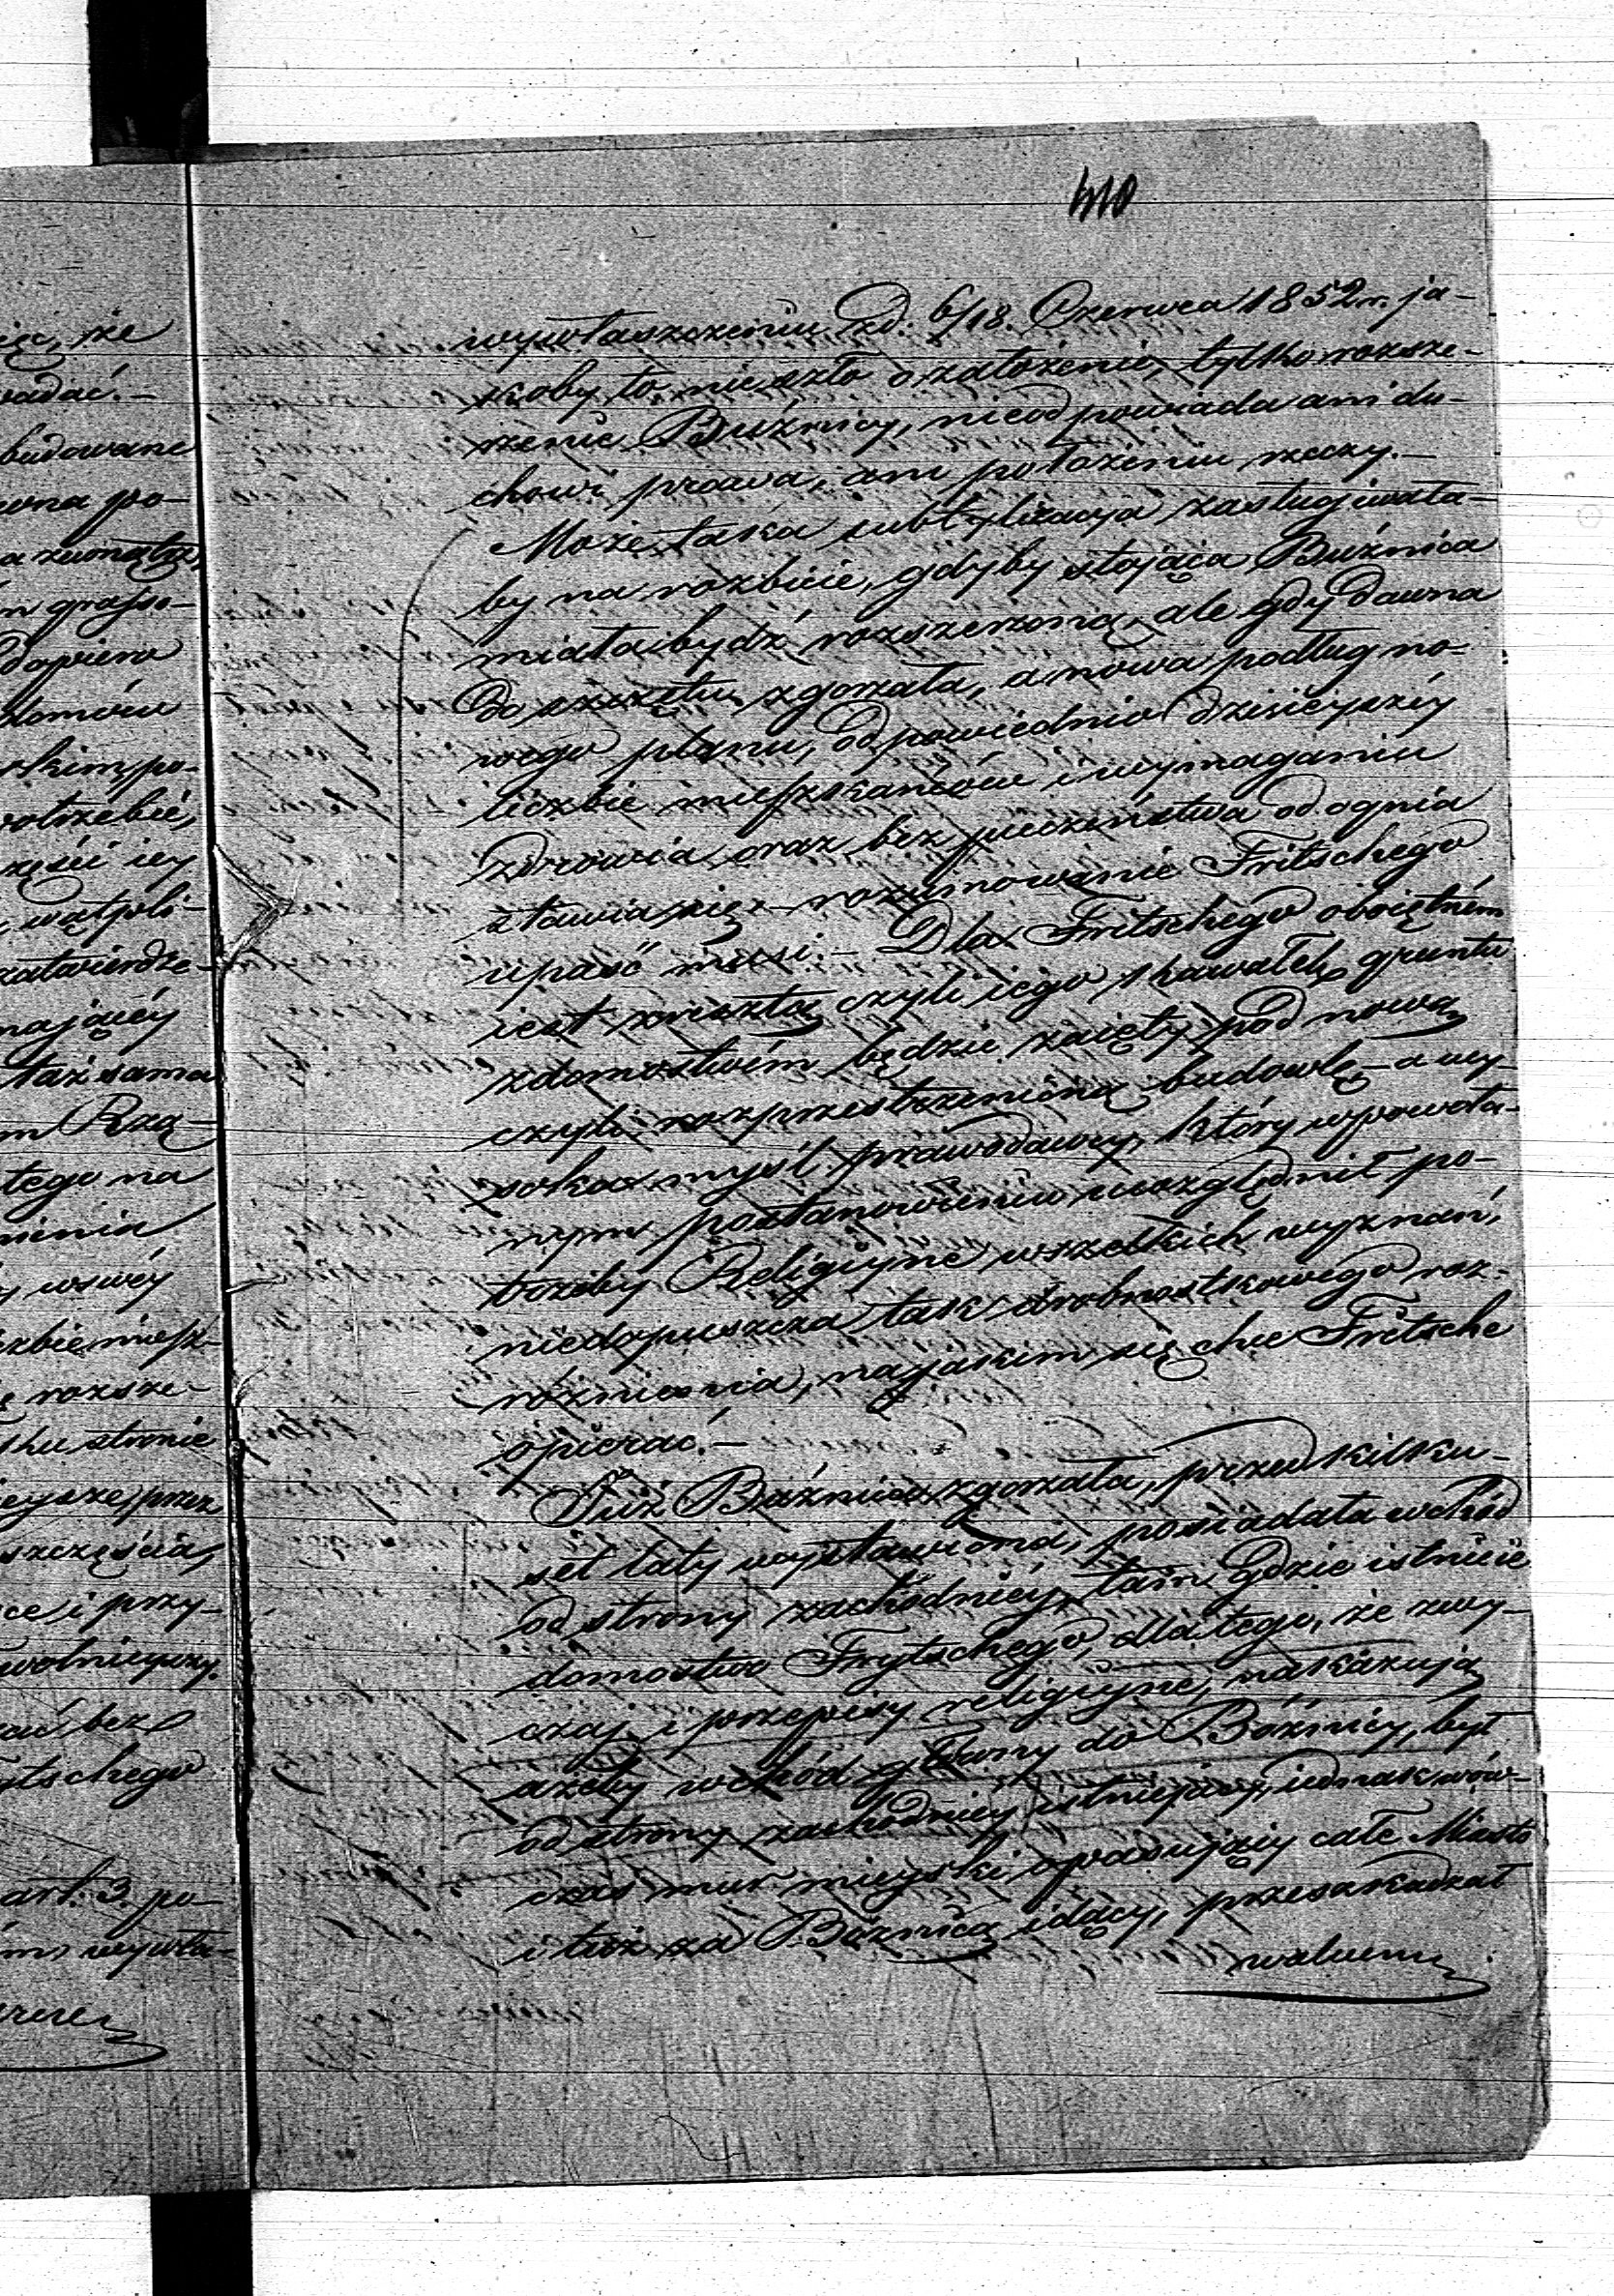 410
ięc, że
wadać.-
budowane
wna po-
a zewnątrz
m grasso-
dopiero
domów
rskim, po-
potrzebie,
części iey
wątpli-
zatwierdze-
mającéy
taż sama
m Rzą-
tego na
nienia
wswéy
czbie miesz-
ę rozsze-
sku stronie
ieysze przez
szczęścia,
ce i przy-
wolnieyszy.
ać bez
ytschego
art. 3. po-
m, wywła-
wywłaszczeniu zd: 6/18. Czerwca 1852 r. ja-
koby to, nie szło o założenie, tylko rozsze-
rzenie Bużnicy, nieodpowiada ani du-
chowi prawa, ani położeniu rzeczy.-
Może taka subtylizacya zasługiwała-
by na rozbicie, gdyby stojąca Bużnica
miała bydź rozszerzoną, ale gdy dawna
do szczętu zgorzała, a nowa podług no-
wego planu, odpowiednio dzisiéyszéy
liczbie mieszkańców i wymaganiu
zdrowia, oraz bezpieczeństwa od ognia
stawia się, - rozumowanie Fritschego
upaść musi. - Dla Fritschego oboiętném
iest zresztą czyli iego kawałek gruntu
z domostwém będzie zaięty pod nową
czyli rozprzestrzenioną budowlę - a wy-
soka myśl prawodawcy, który wpowoła-
nym postanowieniu uwzględnił po-
trzeby Religiyne wszelkich wyznań,
niedopuszcza tak drobnostkowego roz-
różnienia, na jakim się chce Fritsche
opierać.-
Już Bóżnica zgorzała, przed kilku-
set laty wystawiona, posiadała wchód
od strony zachodniéy, tam gdzie istnieie
domostwo Frytschego, dlatego, że zwy-
czaj i przepisy religiyne, nakazują
ażeby wchód główny do Bóżnicy, był
od strony zachodniéy istniejący, iednak wów-
czas mur mieyski opasujący całe Miasto
i tuż za Bóżnicą idący, przeszkadzał
wolnemu